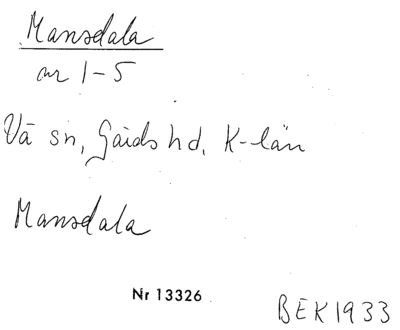 Mansdala
nr 1-5
Vä sn, Gärds hd, K-län
Mansdala
Nr 13326
BEK 1933